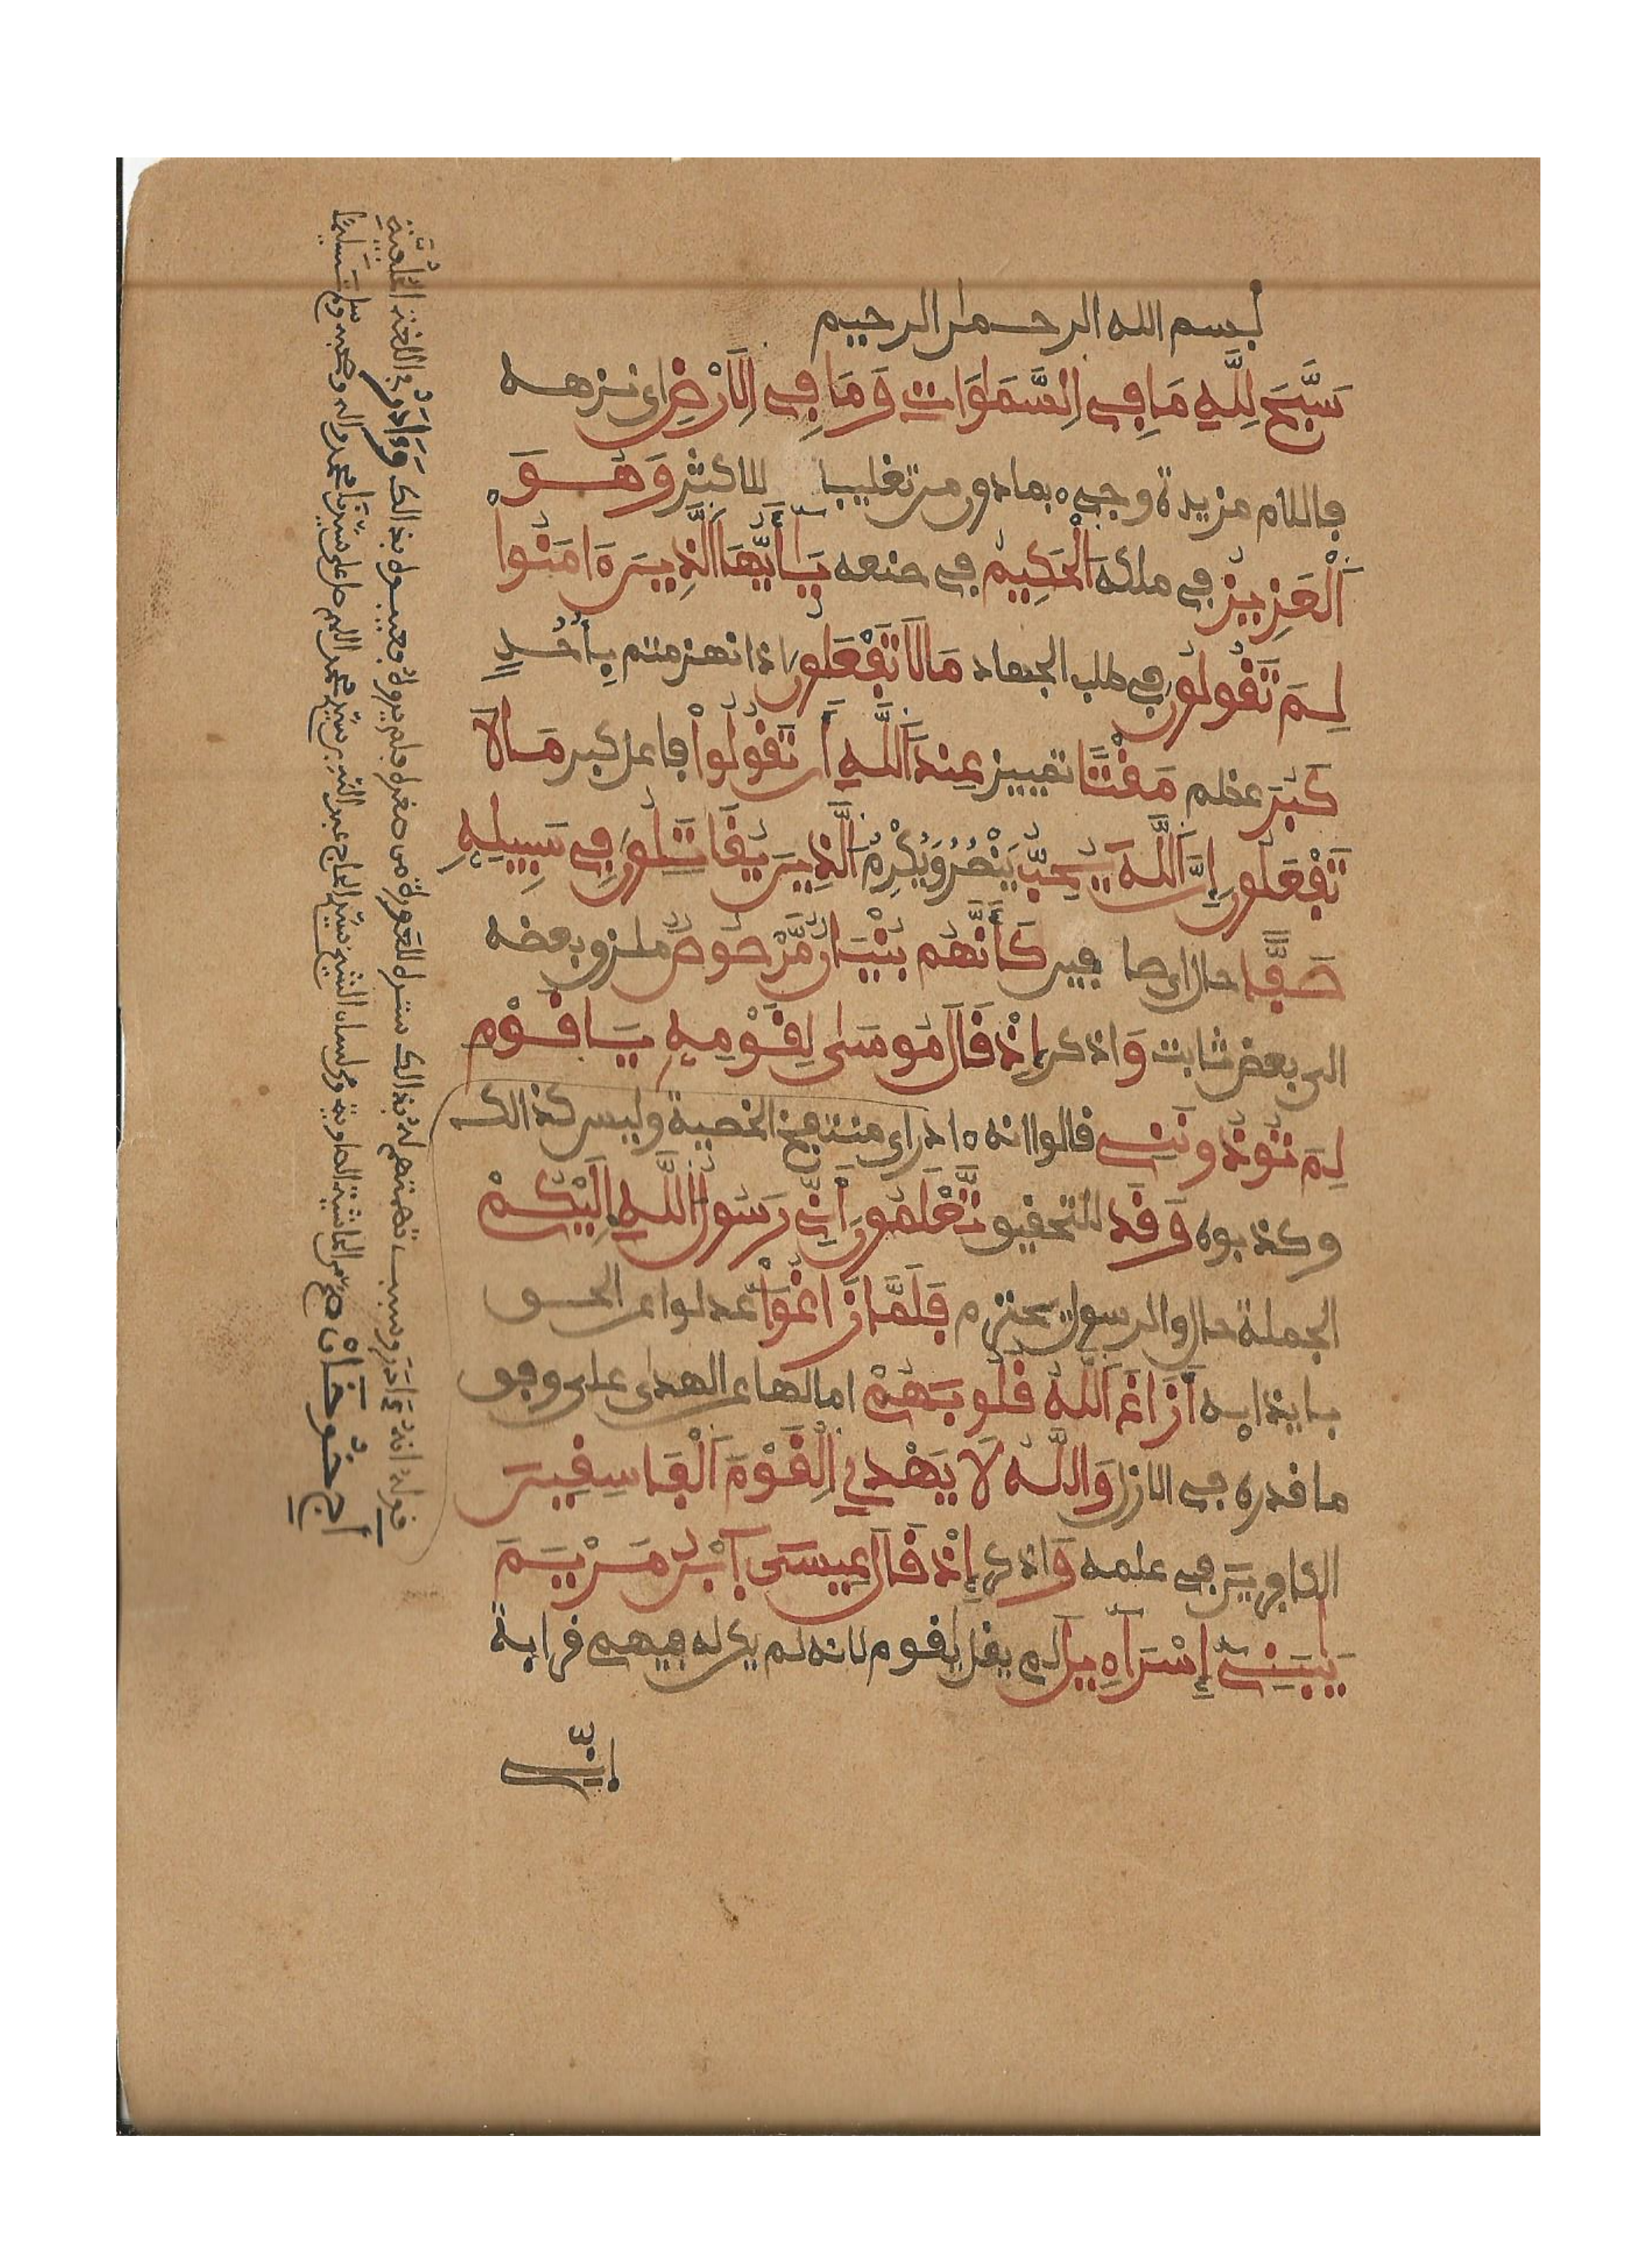 بسم الله الرحمن الرحيم
سَبَّحَ لِلَّهِ مَا فِي اِلسَّمَٰوَاتِ وَمَا فِي اِلَارْضِ اي نزهه
فاللام مزيدة وجيء بما دون من تغليبا للاكثر وَهُوَ
اَلْعَزِيزُ في ملكه اَلْحَكِيمُ في صنعه يَا أَيُّهَا اَلذِينَ ءَامَنُواْ
لِمَ تَقُولُونَ في طلب الجهاد مَا لَا تَفْعَلُونَ اذ انهزمتم بِأُحُدٍ
كَبُرَ عظم مَقْتًا تمييز عِندَ اَللَّهِ أَن تَقُولُواْ فاعل كبر مَا لَا
تَفْعَلُونَ إِنَّ اَللَّهَ يُحِبُّ يَنْصُرُ وَيُكْرِمُ اَلذِينَ يُقَاتِلُونَ فِي سَبِيلِهِ
صَفًّا حال اي صافين كَأَنَّهُم بُنْيَانٌ مَّرْصُوصٌ ملزق بعضه
الى بعض ثابت وَاذكر إِذْ قَالَ مُوسَىٰ لِقَوْمِهِ يَا قَوْمِ
لِمَ تُوذُونَنِي قالوا انه ءادر اي منتفخ الخصية وليس كذالك
وكذبوه وَقَد للتحقيق تَّعْلَمُونَ أَنِّي رَسُولُ اُللَّهِ إِلَيْكُمْ
الجملة حال والرسول يحترم فَلَمَّا زَاغُواْ عدلوا عن الحق
بايذايه أَزَاغَ اَللَّهُ قُلُوبَهُمْ امالها عن الهدى على وفق
ما قدره في الازل وَاللَّهُ لَا يَهْدِي اِلْقَوْمَ اَلْفَاسِقِينَ
الكافرين في علمه وَاذكر إِذْ قَالَ عِيسَى اَبْنُ مَرْيَمَ
يَٰبَنِي إِسْرَآءِيلَ لم يقل يا قوم لانه لم يكن له فيهم قرابة
إِنِّي
قوله انه ءادر وسبب تهمتهم له بذالك ستره للعورة من صغره فلم يروه فعيبوه بذالك وَءَادَرْ في اللغة